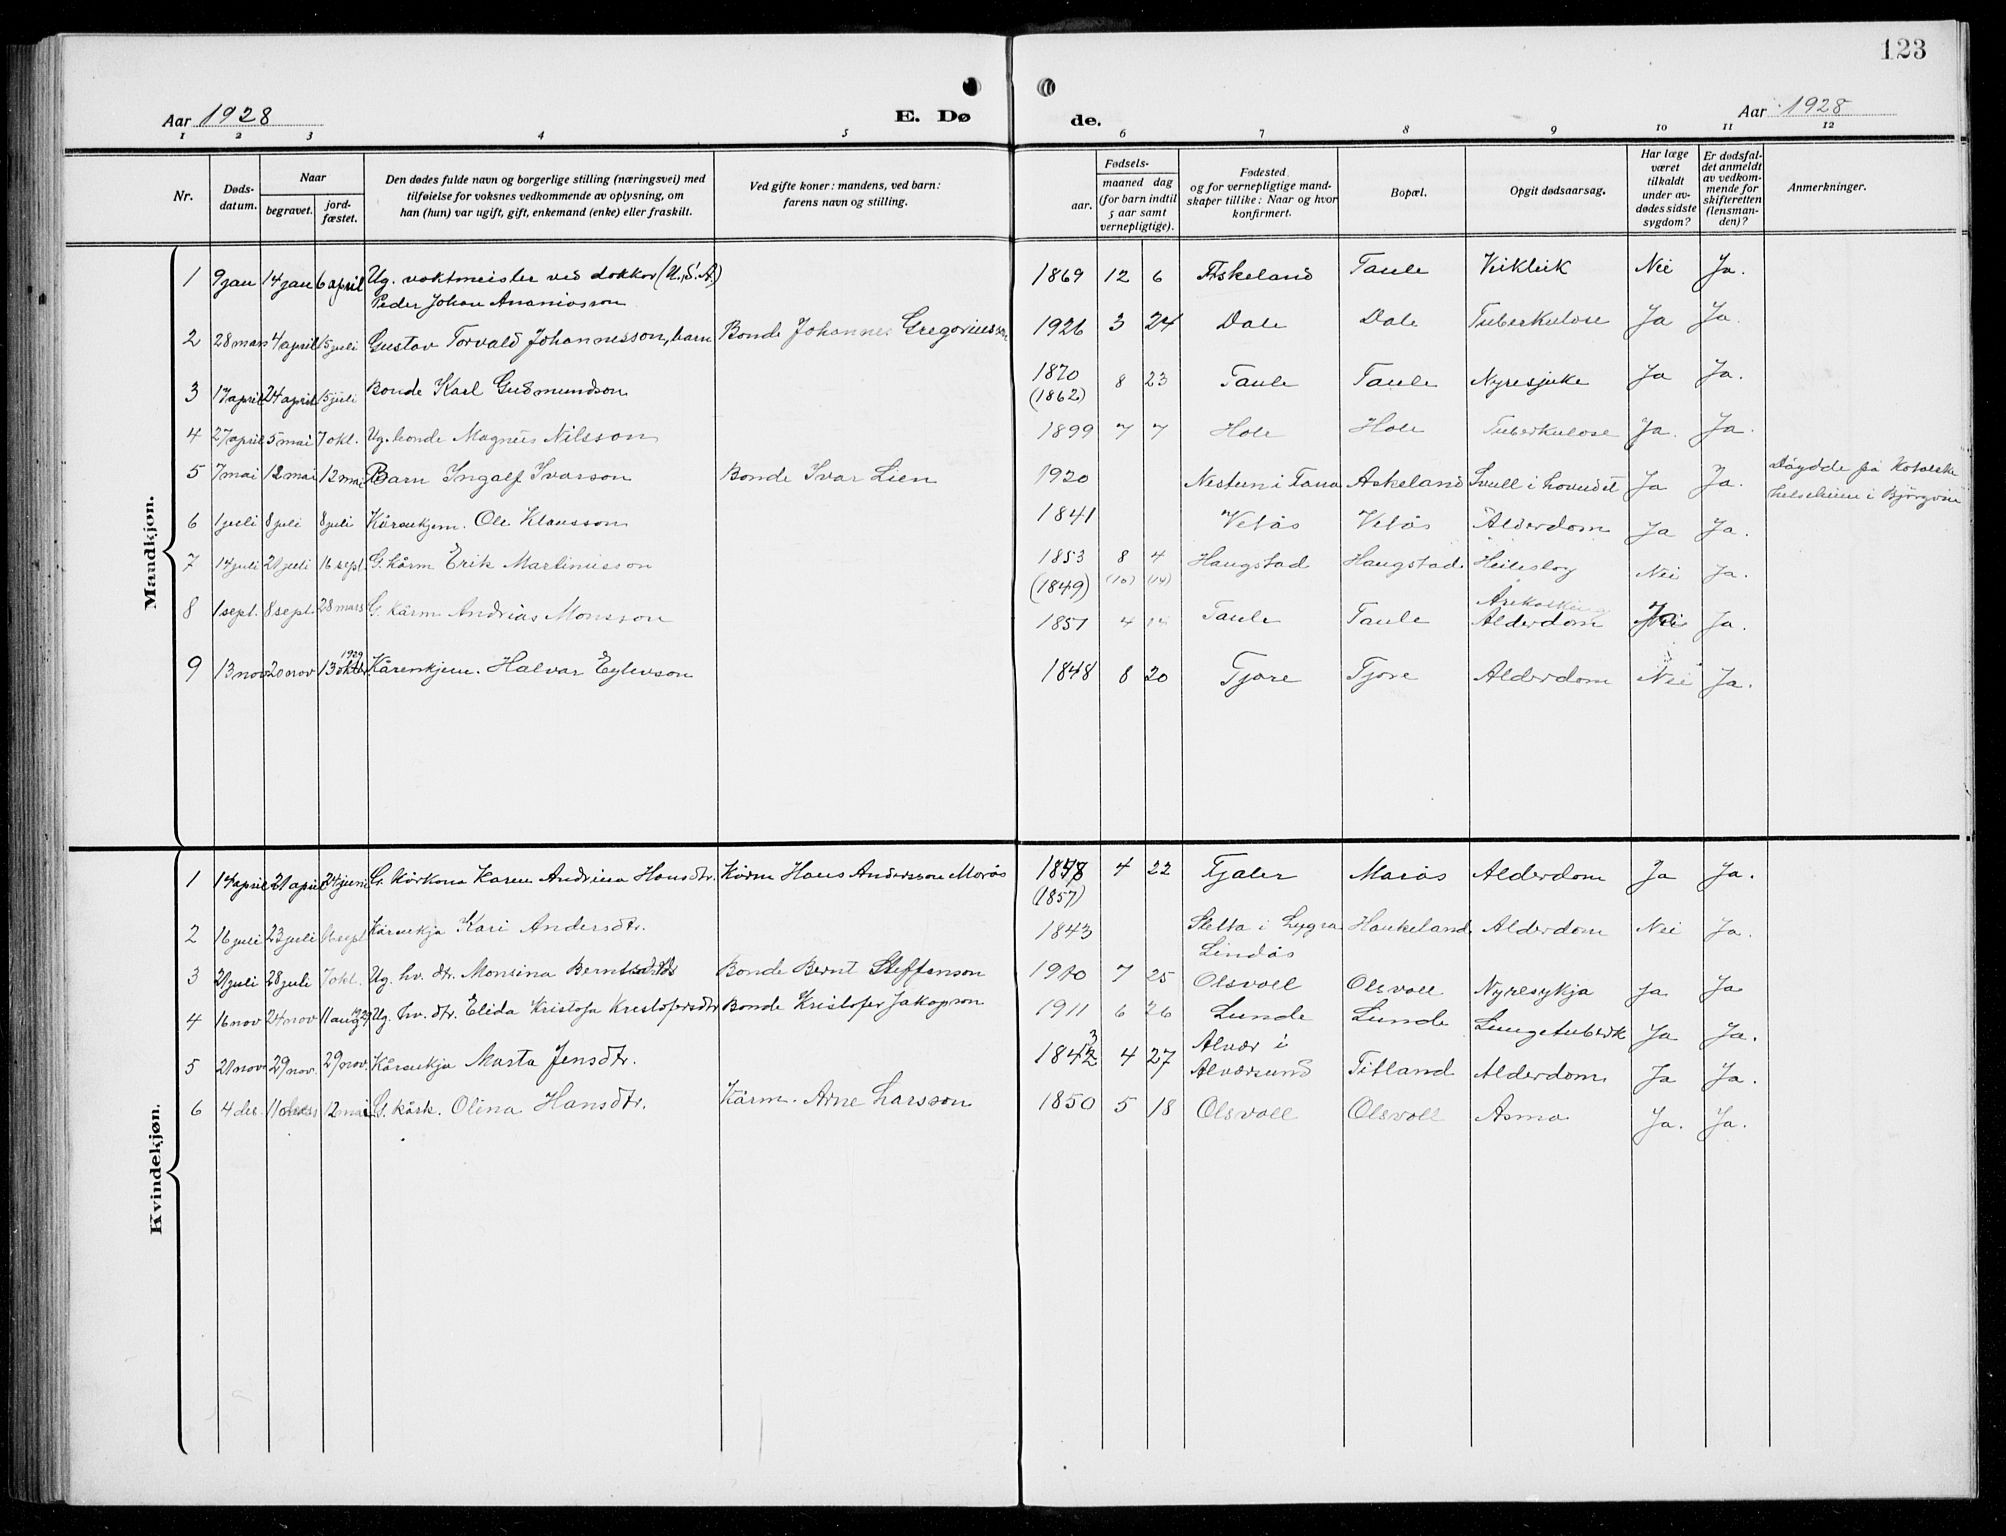 123
Aar 1928 E. Dø de. Aar 1928
1 2 3 4 5 6 7 8 9 10 11 12
Nr. Døds-datum. Naar begravet. jord-fæstet. Den dødes fulde navn og borgerlige stilling (næringsvei) med tilføielse for voksnes vedkommende av oplysning, om han (hun) var ugift, gift, enkemand (enke) eller fraskilt. Ved gifte koner: mandens, ved barn: farens navn og stilling. Fødsels- aar. maaned dag (for barn indtil 5 aar samt vernepligtige). Fødested og for vernepligtige mand-skaper tillike: Naar og hvor konfirmert. Bopæl. Opgit dødsaarsag. Har læge været tilkaldt under av-dødes sidste sygdom? Er dødsfal-det anmeldt av vedkom-mende for skifteretten (lensman-den)? Anmerkninger.
Mandkjøn.
1 9 jan 14 jan 6 april Ug. vaktmeister ved dokkor (U.S.A.) 1869 12 6 Askeland Taule Nei Ja.
Peder Johan Ananiasson
2 28 mars 4 april 15 juli Gustav Torvald Johannesson, barn Bonde Johannes Gregoriusson 1926 3 24 Dale Dale Tuberkulose Ja Ja.
3 17 april 24 april 15 juli Bonde Karl Gudmundson 1870 (1862) 8 23 Taule Taule Nyresjuke Ja Ja.
4 27 april 5 mai 7 okt. Ug. bonde Magnus Nilsson 1899 7 7 Hole Hole Tuberkulose Ja. Ja.
5 7 mai 12 mai 12 mai Barn Ingalf Ivarson Bonde Ivar Lien 1920 Nestun i Fana Askeland Svull i hovudet Ja Ja. Døydde på helseheim i Bjørgvin
6 1 juli 8 juli 8 juli Kårenkjem. Ole Klausson 1841 Vetås Vetås Alderdom Ja Ja.
7 14 juli 21 juli 16 sept. G. kårm Erik Martinusson 1853 (1849) 8 (10) 4 (14) Haugstad Haugstad Heilesløg Nei Ja.
8 1 sept. 8 sept. 28 mars G. kårm Andrias Monsson 1851 4 Taule Taule Alderdom Ja.
9 13 nov 20 nov 13 okt 1929 Kårenkjem. Halvar Eylevson 1848 8 20 Tjore Tjore Alderdom Nei Ja.
Kvindekjøn.
1 14 april 21 april 24 juni G. kårkona Karen Andrina Hansdtr. Kårm Hans Andersson Marås 1848 (1857) 4 22 Fjaler Marås Alderdom Ja Ja.
2 16 juli 23 juli 16 sept Kårenkja Kari Andersdtr. 1843 Sletta i Lygra Haukeland Alderdom Nei Ja.
Lindås
3 21 juli 28 juli 7 okt. Ug. hv. dtr. Monsina Berntsdtr Bonde Bernt Steffenson 1910 7 25 Olsvoll Olsvoll Nyresykja Ja Ja
4 16 nov 24 nov 11 aug 29 Ug. hv. dtr. Elida Kristofa Kristofersdtr Bonde Kristofer Jakopson 1911 6 26 Lunde Lunde Lungetuberk Ja Ja.
5 21 nov 29 nov. 29 nov. Kårenkja Marta Jensdtr. 1842 3 4 27 Alvær i Alværsund Titland Alderdom Ja Ja.
6 4 des. 11 des 12 mai G. kårk. Olina Hansdtr. Kårm. Arne Larsson 1850 5 18 Olsvoll Olsvoll Asma Ja. Ja.